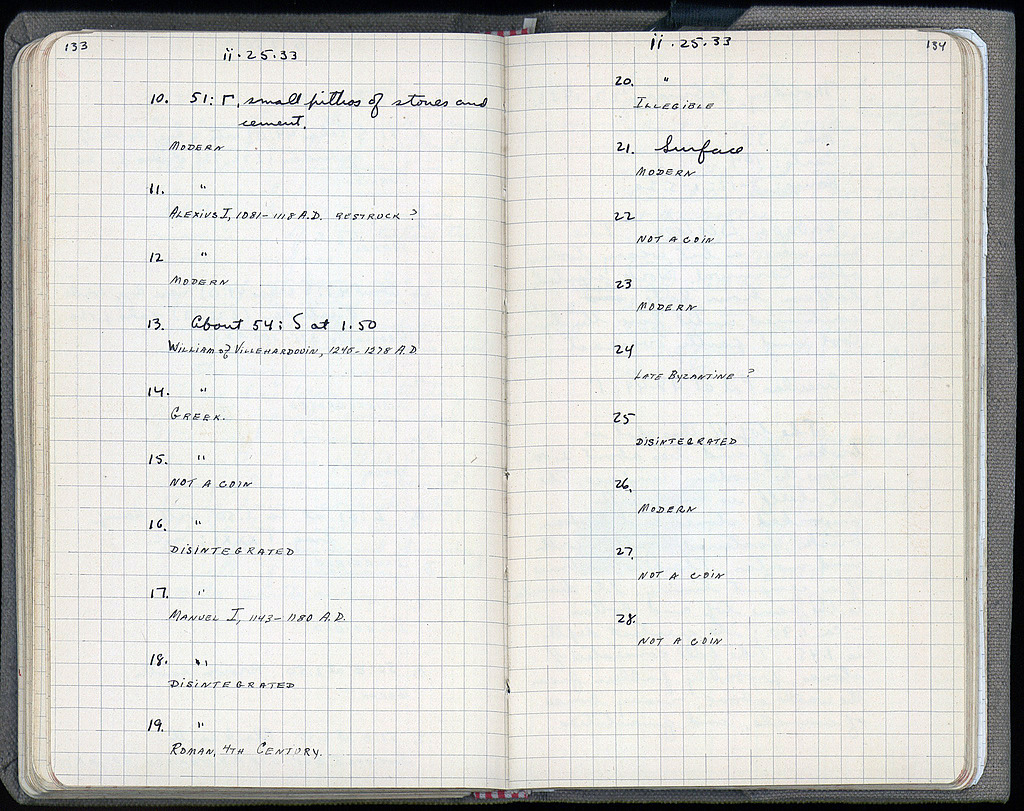 133
ii·25·33
10. 51: Γ, small pithos of stones and
cement.
MODERN
11. "
ALEXIUS I, 1081-1118 A.D. RESTRUCK ?
12 "
MODERN
13. About 54: S at 1.50
WILLIAM of VILLEHARDOUIN, 1245-1278 A.D.
14. "
GREEK.
15. "
NOT A COIN
16. "
DISINTEGRATED
17. "
MANUEL I, 1143-1180 A.D.
18. "
DISINTEGRATED
19. "
ROMAN, 4TH CENTURY.
134
ii·25·33
20. "
ILLEGIBLE
21. Surface
MODERN
22
NOT A COIN
23
MODERN
24
LATE BYZANTINE ?
25
DISINTEGRATED
26.
MODERN
27.
NOT A COIN
28.
NOT A COIN